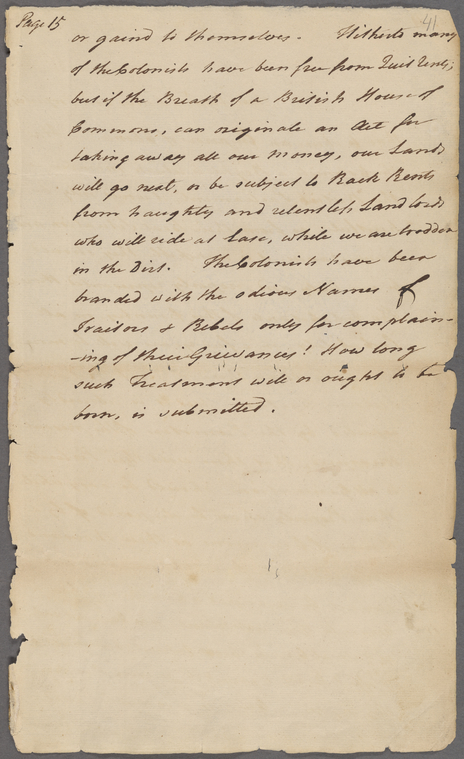 Page 15
41
or gain'd to themselves - Hitherto many
of the Colonists have been free from Quit Rents;
but if the Breath of a British House of
Commons, can originate an Act for
taking away all our money, our Lands
will go next, or be subject to Rack Rents
from haughty and relentless Landlords
who will ride at Ease, while we are trodden
in the Dirt. The Colonists have been
branded with the odious Names of
Traitors & Rebels only for complain-
-ing of their Grievances! How long
such Treatment will or ought to be
born, is submitted.